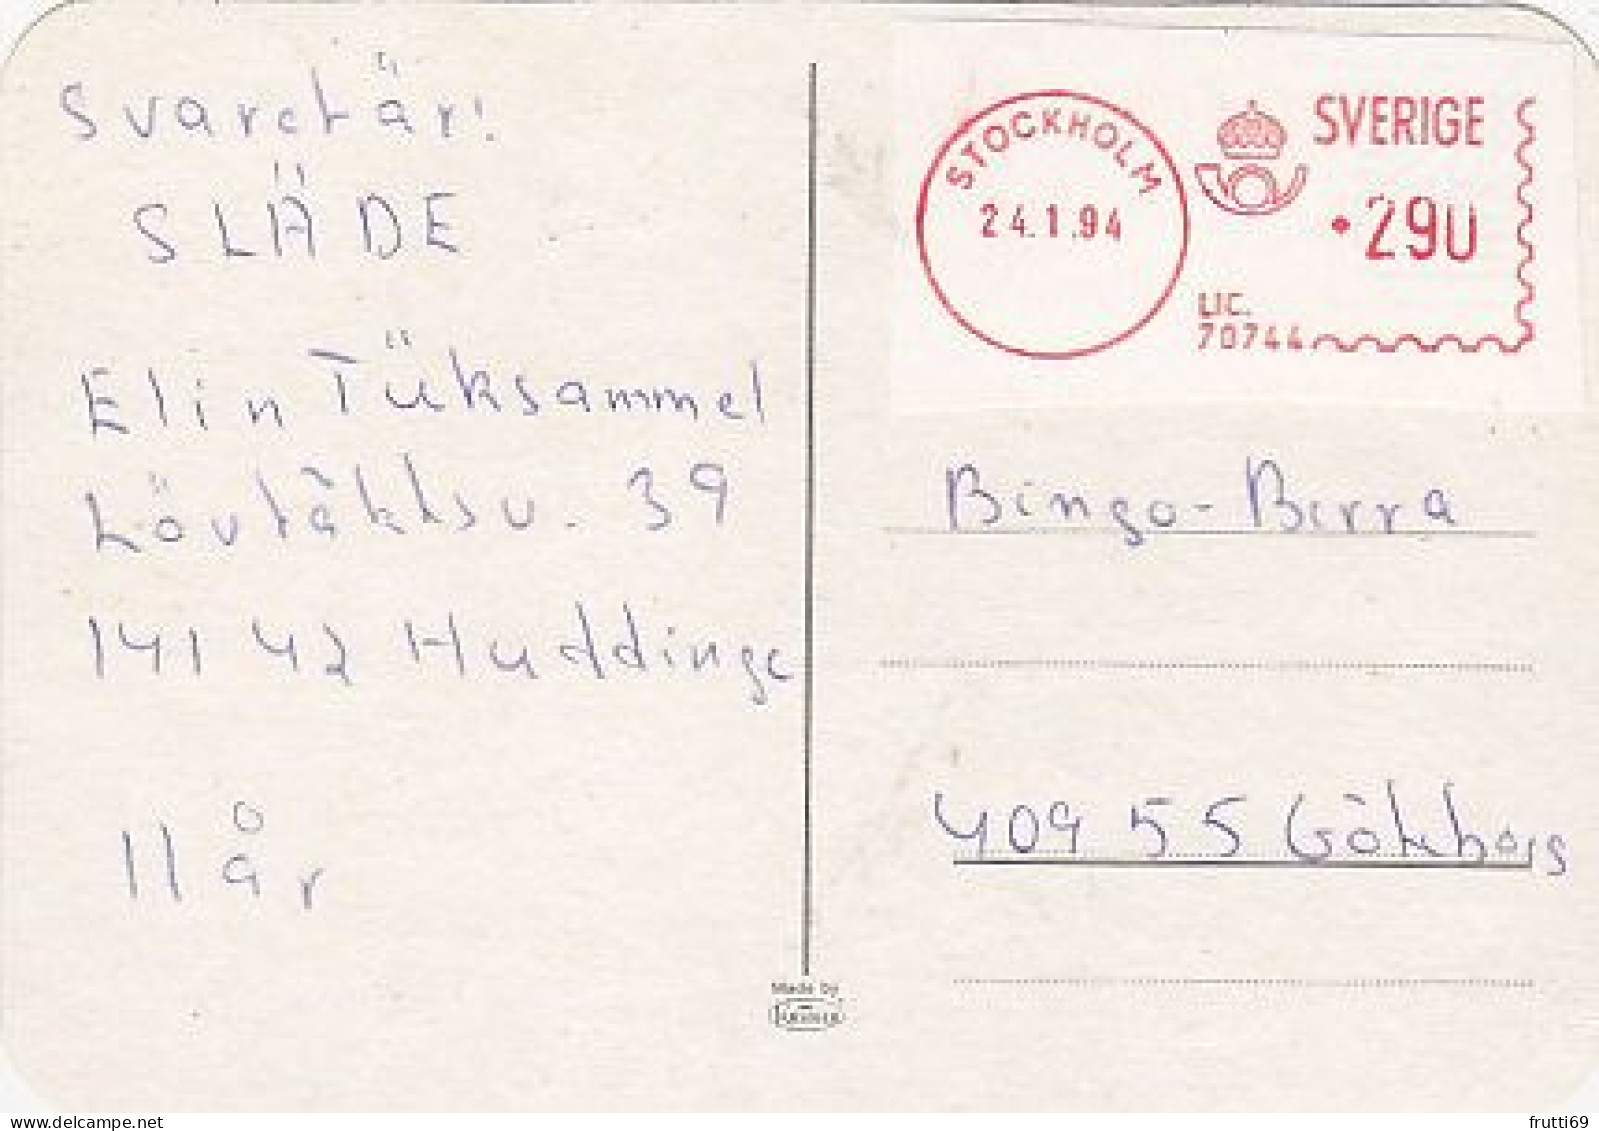 Svaret är:
SLÄDE
Elin Tüksammel
Lövtäktsv. 39
141 42 Huddinge
11 år
STOCKHOLM
24.1.94
SVERIGE
290
LIC.
70744
Bingo-Birra
409 55 Göteborg
Made by
frutti69